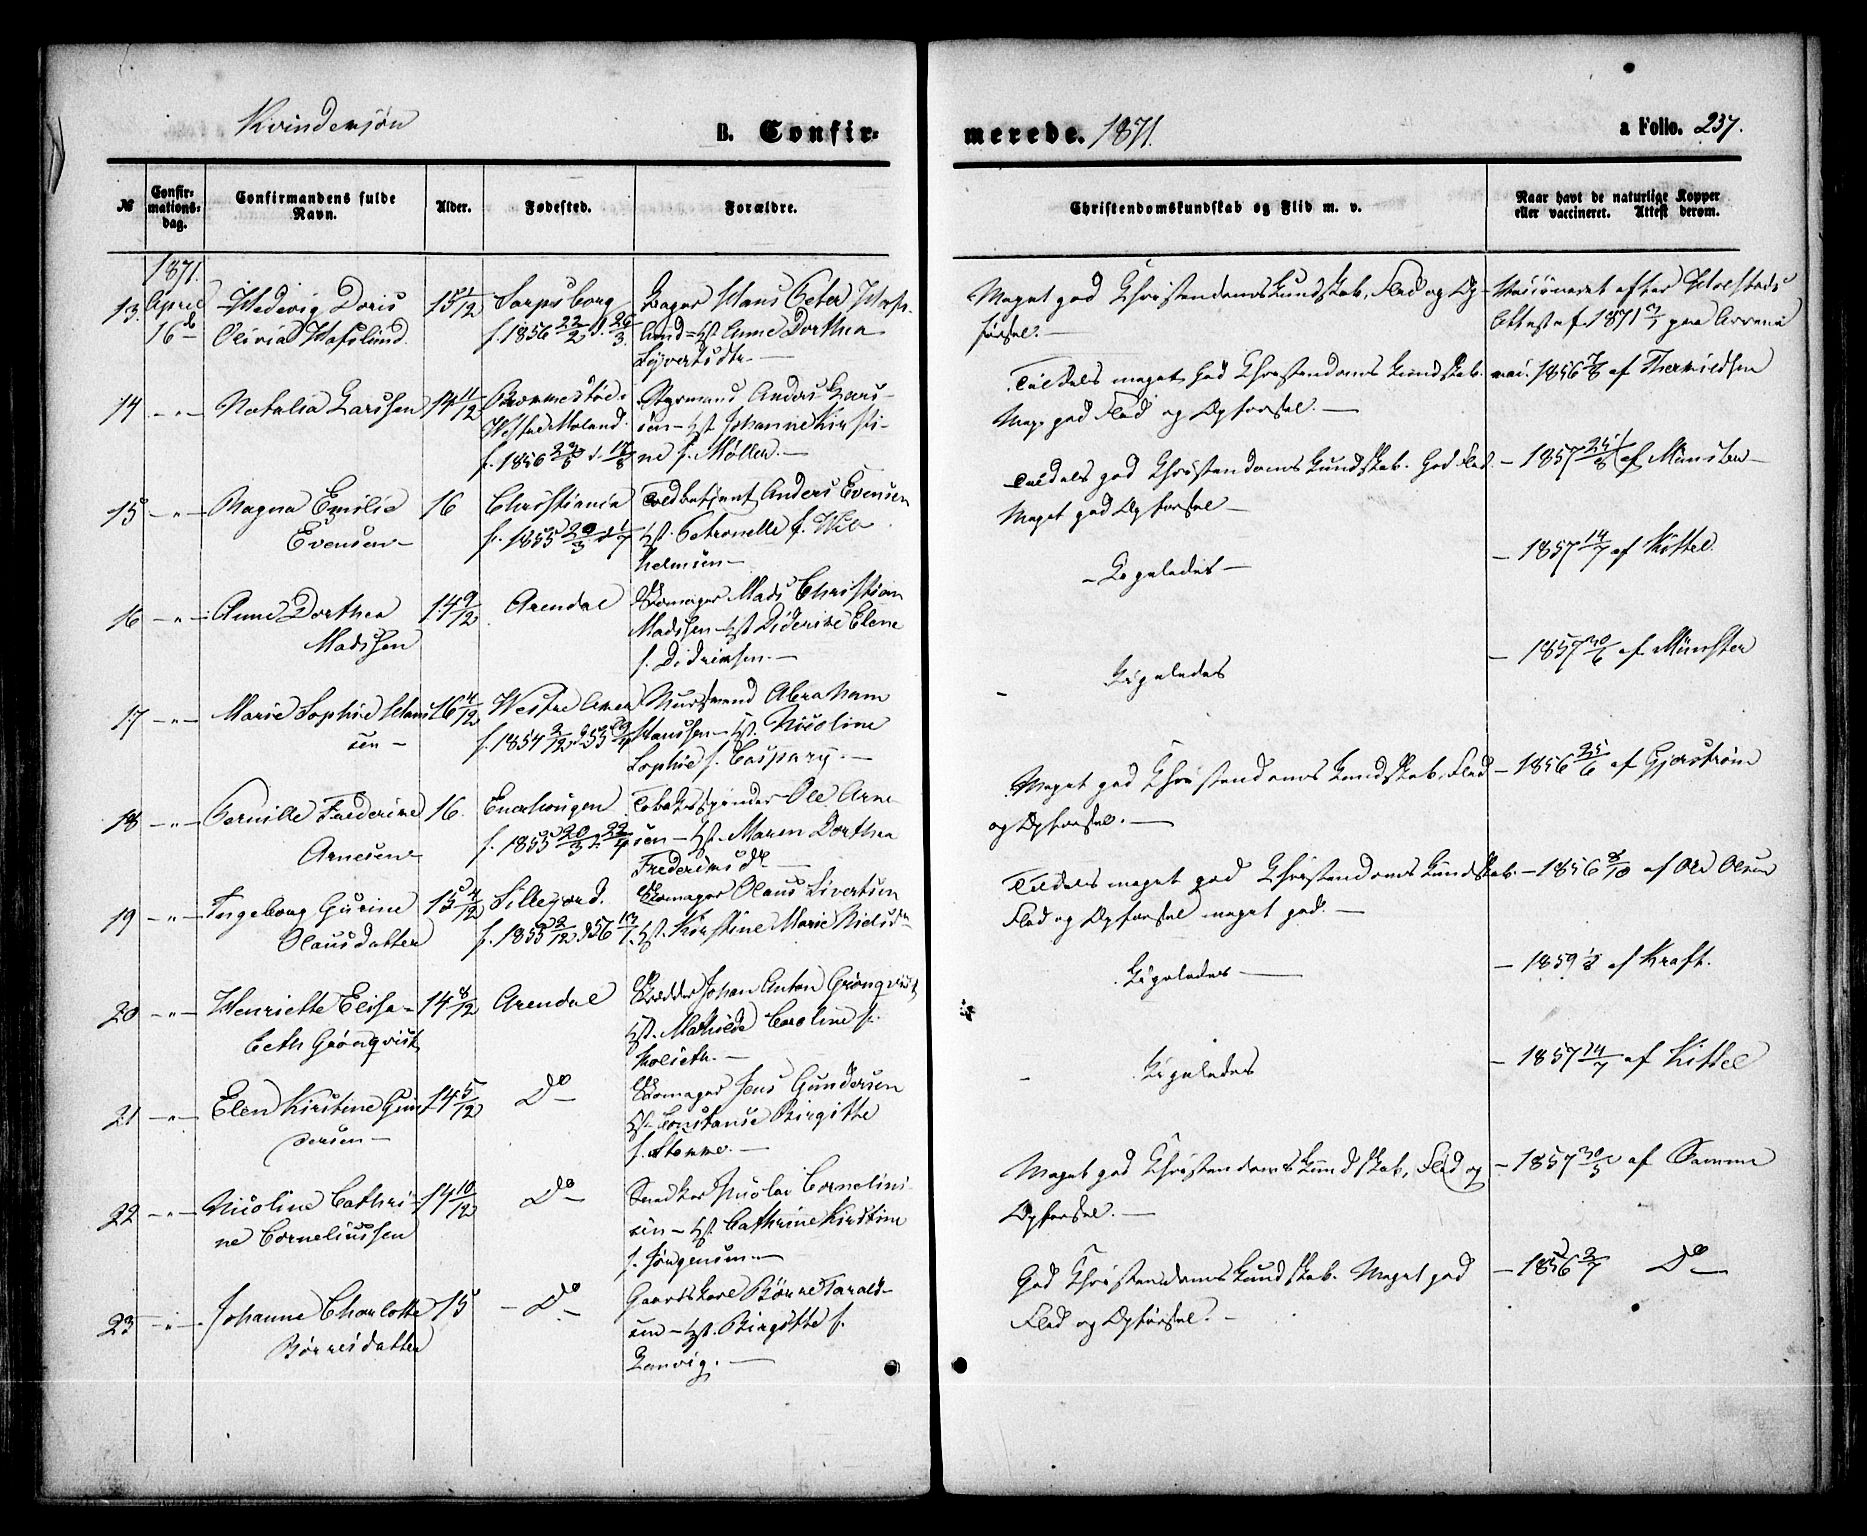 Kvindekjøn
B. Confir-
merede. 1871.
a Folio. 237.
№
Confir-
mations-
dag.
Confirmandens fulde
Navn.
Alder.
Fødested.
Forældre.
Christendomskundskab og Flid m. v.
Naar havt de naturlige Kopper
eller vaccineret. Attest derom.
1871.
13. April
16de
Hedevig Doris
Olivia Hafslund.
15 1/12
Sarpsborg
f. 1856 22/2 d. 26/3.
Bager Hans Peter Hafs-
lund - Hst Anne Dorthea
Syvertsdtr. —
Meget god Christendomskundskab, Flid og Op-
førsel. —
Vaccineret efter
Attest af 1871
14 — " —
Natalia Larssen
14 11/12
f. 1856
Styrmand Anders Lars-
sen - Hst Johanne Kirsti-
ne f. Møller. —
Tildels meget god Christendoms Kundskab.
Meg. god Flid og Opførsel. —
vac. 1856 7/8 af
15 — " —
Magna Emilie
Evensen —
16
Christiania
f. 1855 20/3 d. 1/7
Toldbetjent Anders Evensen
Hst. Petronelle f. Wil-
helmsen —
Tildels god Christendoms Kundskab. God Flid
Meget god Opførsel —
— 1857 25/8 af Münster —
16 — " —
Anne Dorthea
Madssen
14 9/12
Arendal
Skomager Mads Christian
Madssen - Hst Diderike Elene
f. Didriksen. —
— Ligeledes —
— 1857 14/7 af Kittel.
17 — " —
Marie Sophie Hans-
sen —
16 4/12
f. 1854 2/12 d. 55
Abraham
Hanssen - Hst. Nicoline
Sophie f. Caspary. —
— Ligeledes
— 1857 30/6 af Münster
18 — " —
Pernille Frederike
Arnesen
16.
Enerhougen
f. 1855 20/3 d. 22/4
Tobakspinder Ole Arne-
sen - Hst. Maren Dorthea
Frederiksdr —
Meget god Christendoms Kundskab, Flid
og Opførsel. —
— 1856 25/6 af Gjørstrøm
19 — " —
Ingeborg Gurine
Olausdatter
15 4/12
Sillejord.
f. 1855 2/12 d. 56 13/1.
Skomager Olaus Sivertsen
Hst. Kirstine Marie Nielsdr
Tildels meget god Christendoms Kundskab.
Flid og Opførsel meget god. —
— 1856 8/10 af Ole Olsen
20 — " —
Henriette Elisa-
beth Grönqvist
14 8/12
Arendal
Johan Anton Grönqvist
Hst. Mathilde Caroline f.
Ligeledes —
— 1859 af Kraft.
21 — " —
Elen Kirstine Gun-
dersen —
14 5/12
Do
Skomager Jens Gundersen
Hst. Constanse Birgitte
— Ligeledes
— 1857 14/7 af Kittel
22 — " —
Nicoline Cathri-
ne Corneliussen
14 10/12
Do
Snedker Nicolai Cornelius-
sen - Hst Cathrine Kirstine
f. Jörgensen. —
Meget god Christendoms Kundskab, Flid og
Opførsel. —
— 1857 30/5 af Samme
23 — " —
Johanne Charlotte
Börresdatter
15
— Do
Gaardskarl Börre Tarald-
sen - Hst. Birgitte f.
God Christendoms Kundskab. Meget god
Flid og Opførsel. —
— 1856 2/7 Do